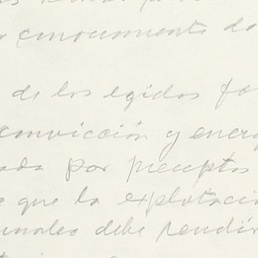 conocimiento de
de los egidos
convicción y energ
ada por preceptos
e que la explotació
unales debe rendir